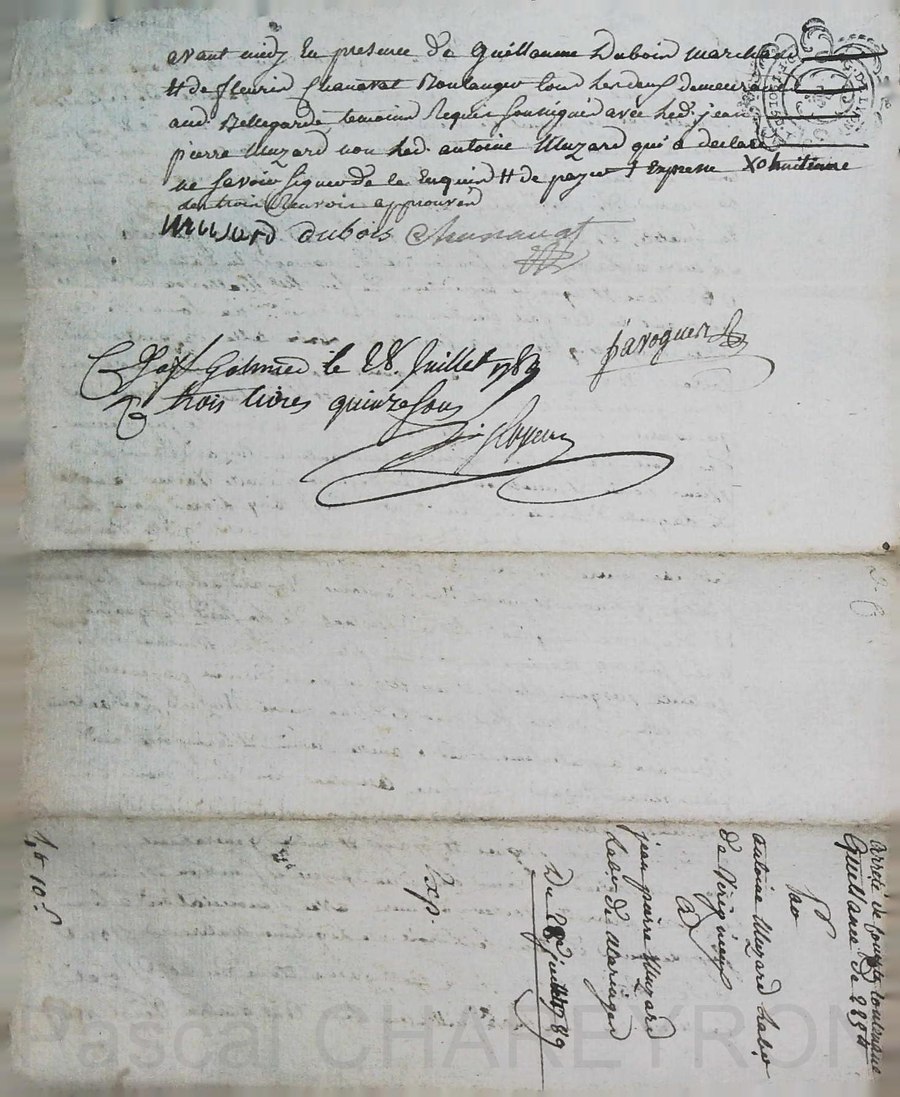 avant midy En presence de Guillaume Duboin marchand
# de fleurin Chanavat Boulanger tous les deux demeurant
aud. Bellegarde temoins Requis soussignés avec led. jean
pierre Muzard non led. antoine Muzard qui a declaré
ne savoir signer de ce Enquis # de payer Expresse X° huitieme
les trois Renvois approuvés
Musard dubois Chanavat
paroguez
Galmier le 28 Juillet 1789
trois livres quinze sous
Arreté de compte contenant
Quittance de 289#
Par
antoine Muzard Labr
de Virigneux
A
jean pierre Muzard
Labr de Maringes
Du 28 juillet 1789
Exp
10 s
Pascal CHAREYRON